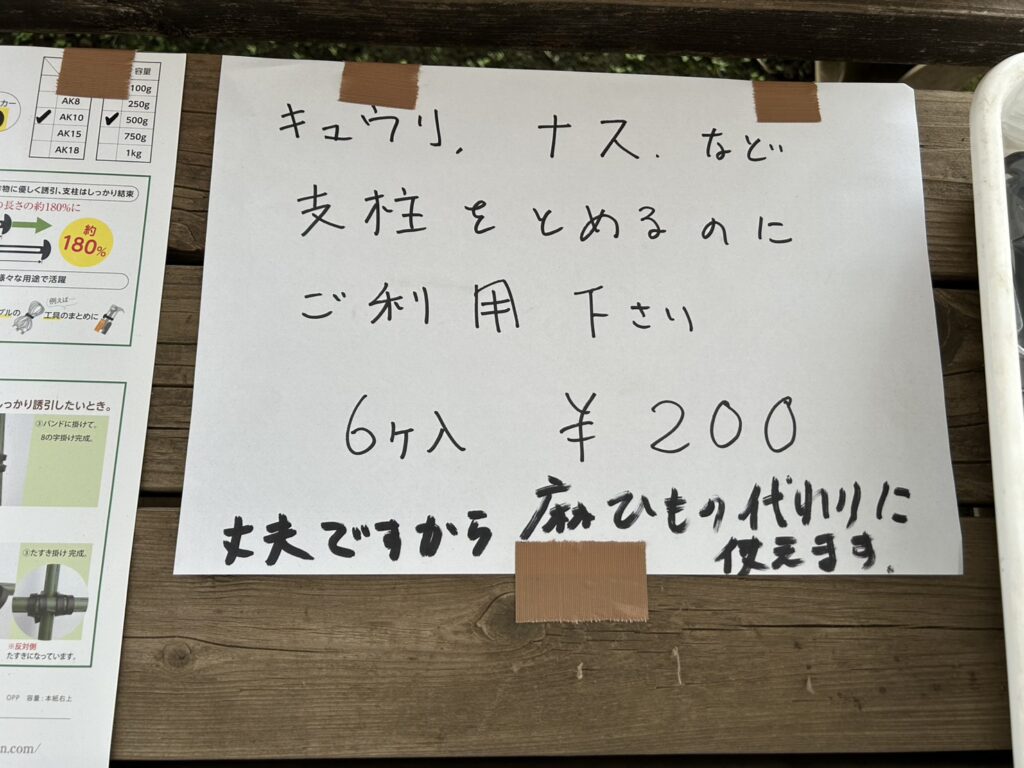 容量
100g
AK8 250g
カー ✓ AK10 ✓ 500g
AK15 750g
AK18 1kg
物に優しく誘引、支柱はしっかり結束
長さの約180%に
約
180%
様々な用途で活躍
例えば
ブルの 工具のまとめに
しっかり誘引したいとき。
③バンドに掛けて、
8の字掛け完成。
③たすき掛け完成。
※反対側
たすきになっています。
OPP 容量:本紙右上
n.com/
キュウリ, ナス. など
支柱をとめるのに
ご利用下さい
6ヶ入 ¥200
丈夫ですから 麻ひもの代わりに
使えます.